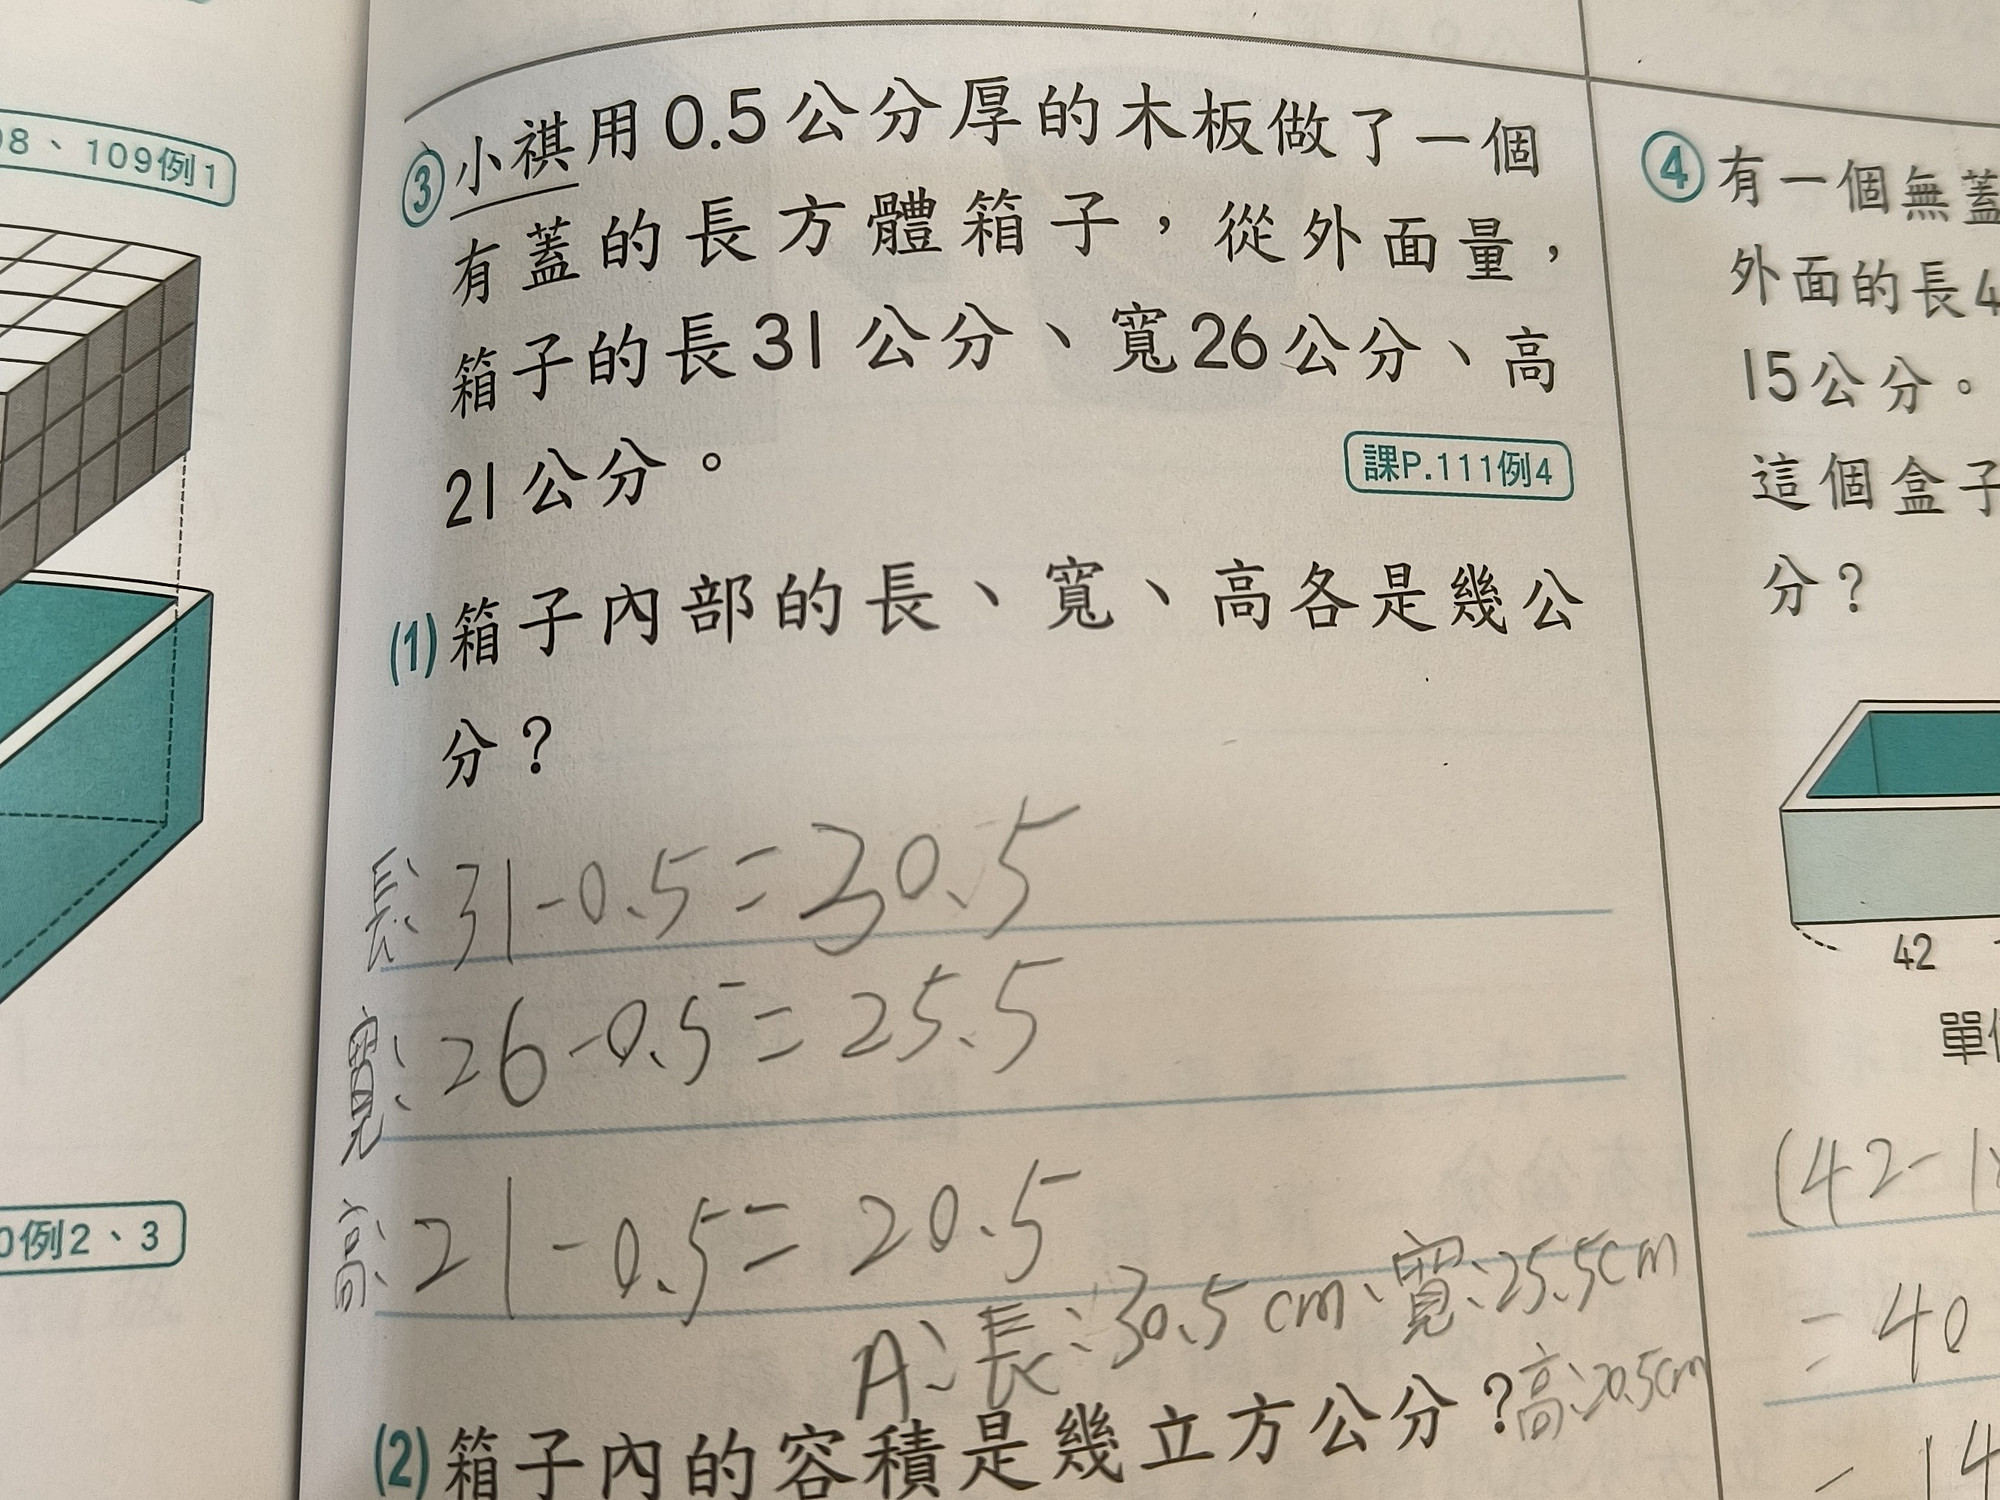 08、109例1
0例2、3
③小祺用0.5公分厚的木板做了一個
有蓋的長方體箱子，從外面量，
箱子的長31公分、寬26公分、高
21公分。
課P.111例4
(1)箱子內部的長、寬、高各是幾公
分？
長：31-0.5=30.5
寬：26-0.5=25.5
高：21-0.5=20.5
A：長：30.5cm、寬：25.5cm
高：20.5cm
(2)箱子內的容積是幾立方公分？
④有一個無蓋
外面的長4
15公分。
這個盒子
分？
42
單
(42-1×
=40
=14